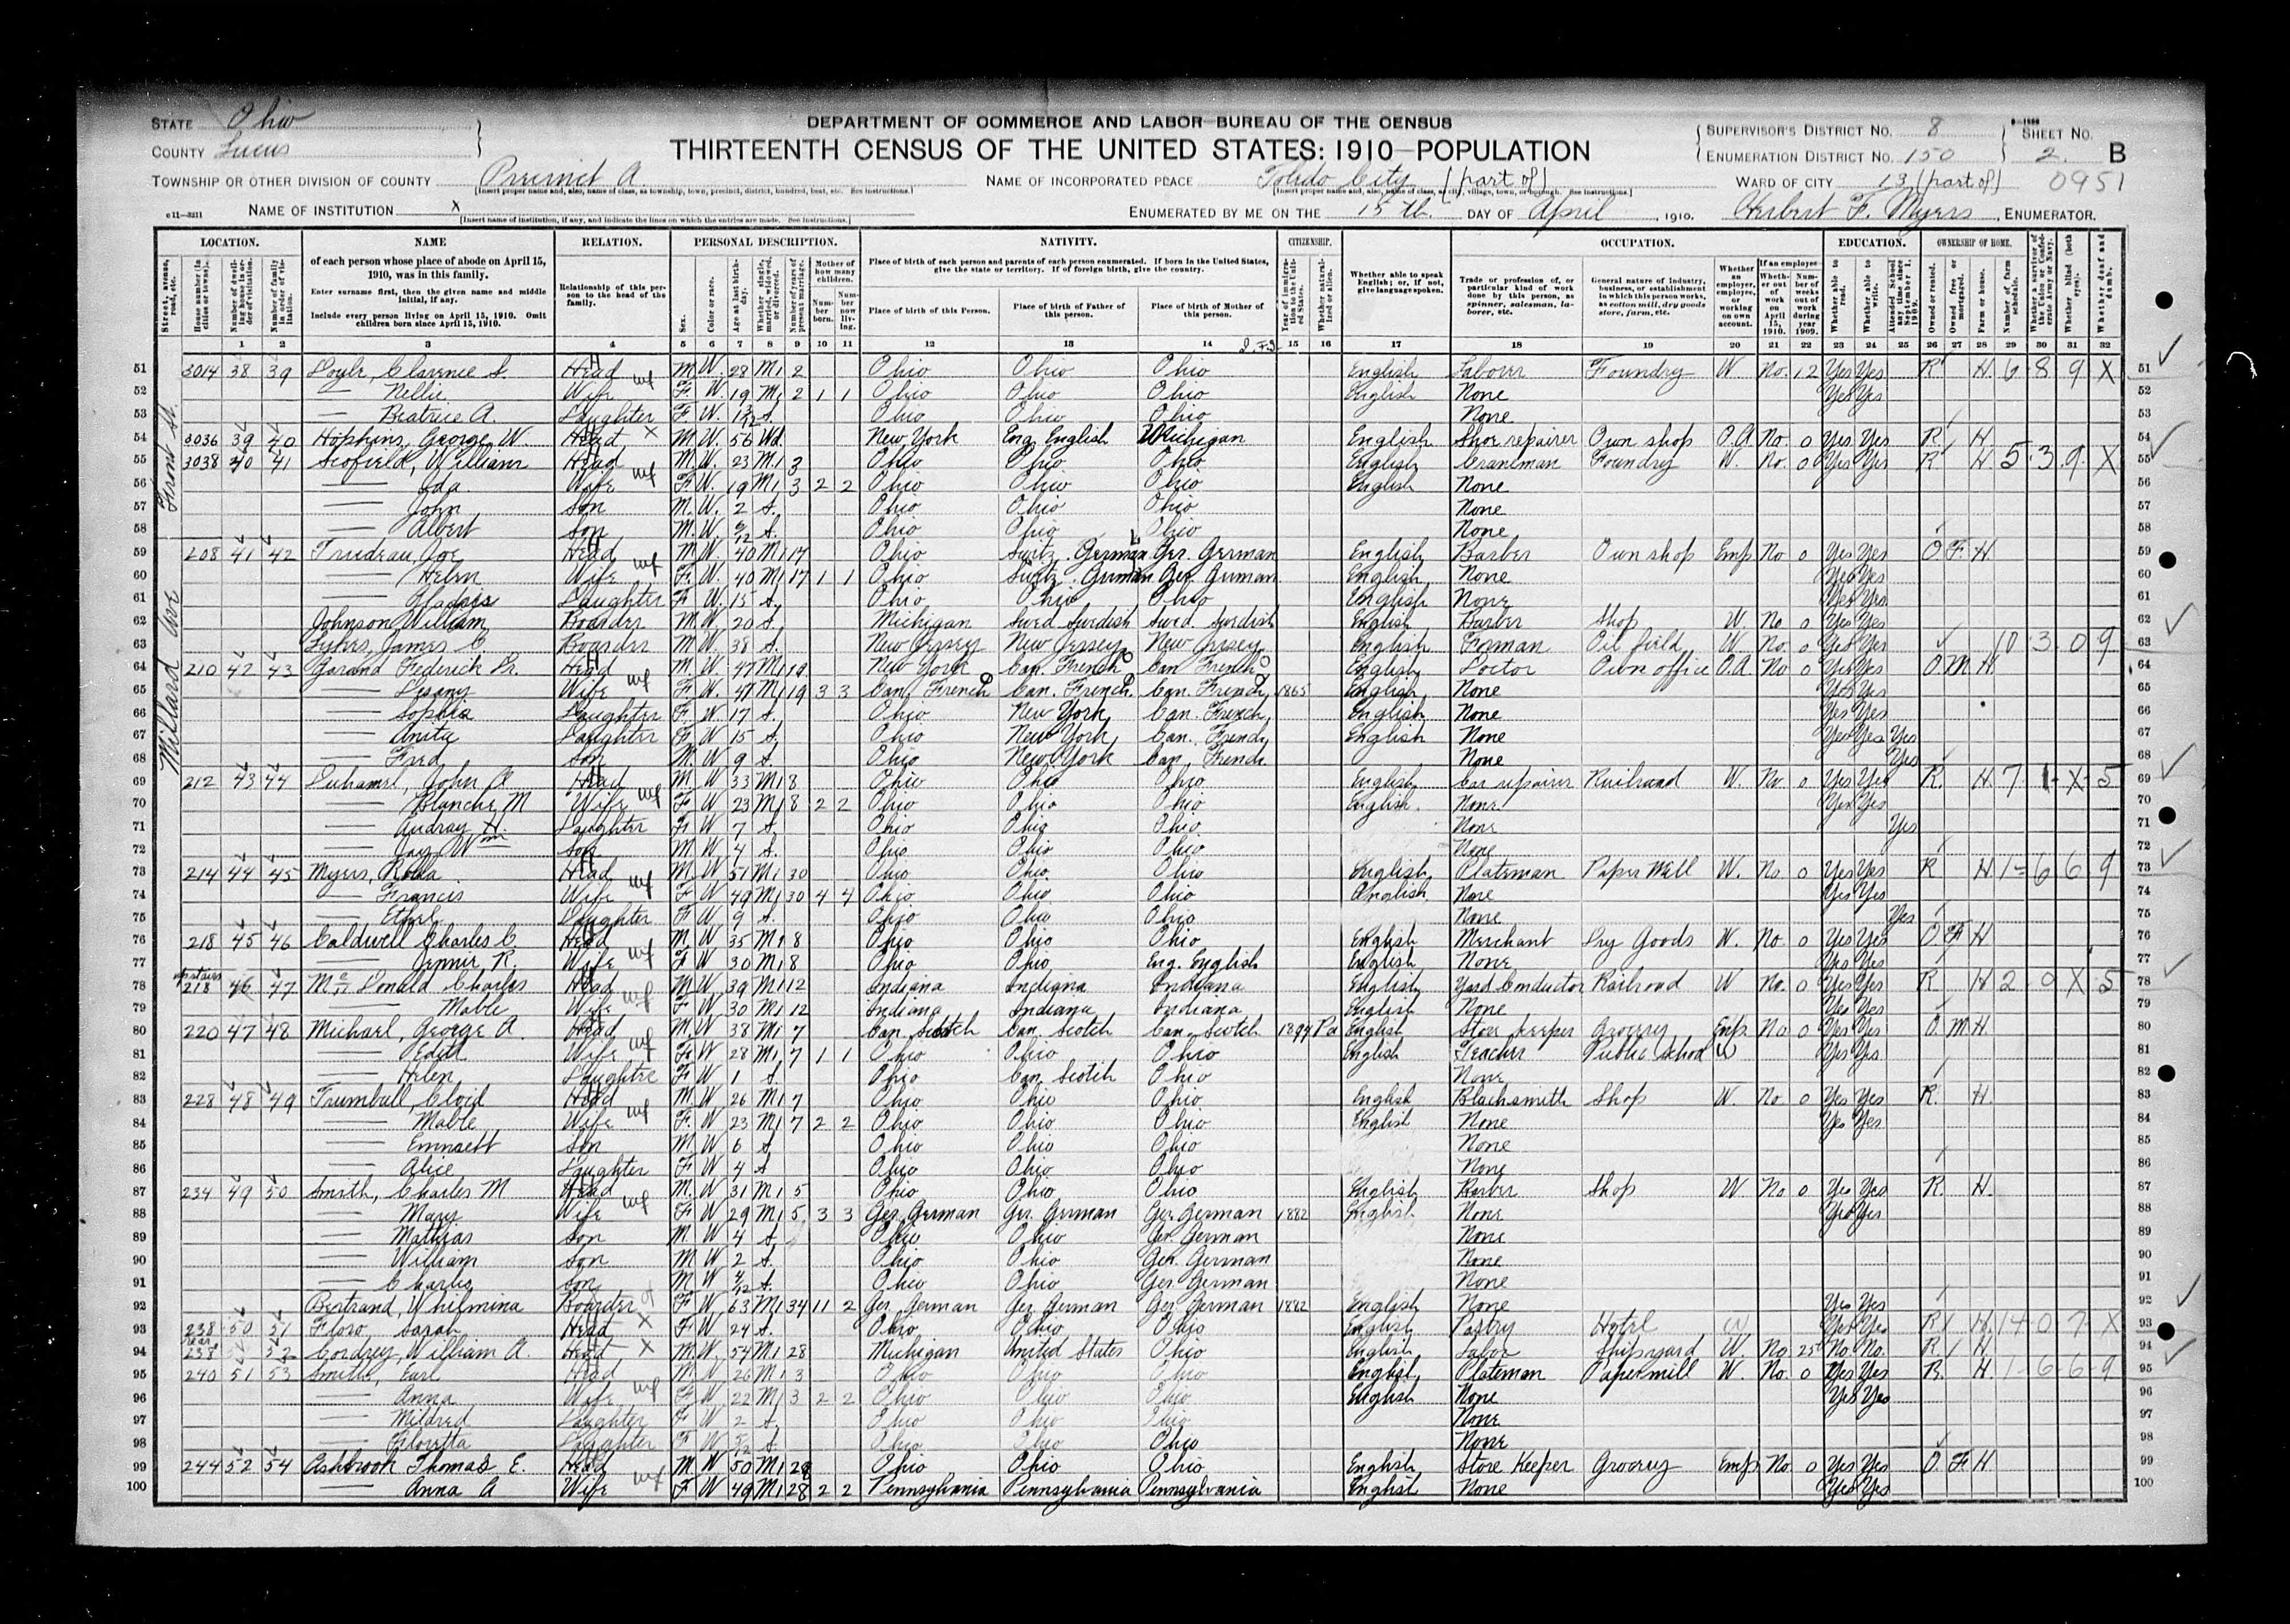 STATE Ohio
COUNTY Lucus
TOWNSHIP OR OTHER DIVISION OF COUNTY Precinct A
NAME OF INSTITUTION X
DEPARTMENT OF COMMERCE AND LABOR—BUREAU OF THE CENSUS
THIRTEENTH CENSUS OF THE UNITED STATES: 1910—POPULATION
NAME OF INCORPORATED PLACE Toledo City (part of)
ENUMERATED BY ME ON THE 15th DAY OF April, 1910. Herbert F. Myers, ENUMERATOR.
SUPERVISOR'S DISTRICT No. 8
ENUMERATION DISTRICT No. 150
SHEET No. 2 B
WARD OF CITY 13 (part of) 0951
LOCATION. NAME RELATION. PERSONAL DESCRIPTION. NATIVITY. CITIZENSHIP. OCCUPATION. EDUCATION. OWNERSHIP OF HOME.
of each person whose place of abode on April 15, 1910, was in this family.
Enter surname first, then the given name and middle initial, if any.
Include every person living on April 15, 1910. Omit children born since April 15, 1910.
Relationship of this person to the head of the family.
Place of birth of each person and parents of each person enumerated. If born in the United States, give the state or territory. If of foreign birth, give the country.
Place of birth of this Person. Place of birth of Father of this person. Place of birth of Mother of this person.
Whether able to speak English; or, if not, give language spoken.
Trade or profession of, or particular kind of work done by this person, as spinner, salesman, laborer, etc.
General nature of industry, business, or establishment in which this person works, as cotton mill, dry goods store, farm, etc.
1 2 3 4 5 6 7 8 9 10 11 12 13 14 15 16 17 18 19 20 21 22 23 24 25 26 27 28 29 30 31 32
Front St.
51 3014 38 39 Doyle, Clarence S. Head M W 28 M1 2 Ohio Ohio Ohio English Laborer Foundry W No 12 Yes Yes R H 6 8 9 X 51
52 — Nellie Wife F W 19 M1 2 1 1 Ohio Ohio Ohio English None Yes Yes 52
53 — Beatrice A. Daughter F W S Ohio Ohio Ohio None 53
54 3036 39 40 Hopkins, George W. Head M W 56 Wd. New York Eng. English Michigan English Shoe repairer Own shop O.A. No 0 Yes Yes R H 54
55 3038 40 41 Scofield, William Head M W 23 M1 3 Ohio Ohio Ohio English Craneman Foundry W. No 0 Yes Yes R H 5 3 9 X 55
56 — Ida Wife F W 19 M1 3 2 2 Ohio Ohio Ohio English None 56
57 — John Son M W 2 S. Ohio Ohio Ohio None 57
58 — Albert Son M W S. Ohio Ohio Ohio None 58
Millard Ave
59 208 41 42 Trudeau, Joe Head M W 40 M1 17 Ohio Switz. German Ger. German English Barber Own shop Emp No 0 Yes Yes O F H 59
60 — Helen Wife F W 40 M1 17 1 1 Ohio Switz. German Ger. German English None Yes Yes 60
61 — Gladys Daughter F W 15 S. Ohio Ohio Ohio English None Yes Yes 61
62 Johnson William Boarder M W 20 S. Michigan Swed. Swedish Swed. Swedish English Barber Shop W No 0 Yes Yes 62
63 James C. Boarder M W 38 S. New Jersey New Jersey New Jersey English Foreman Oil field W. No 0 Yes Yes 10 3 0 9 63
64 210 42 43 Garand Federick Dr. Head M. W 47 M1 19 New York Can. French Can French English Doctor Own office O.A. No 0 Yes Yes O M H 64
65 — Wife F. W 47 M1 19 3 3 Can. French Can. French Can. French 1865 English None Yes Yes 65
66 — Sophia Daughter F. W 17 S. Ohio New York Can. French English None Yes Yes 66
67 — Anita Daughter F W 15 S. Ohio New York Can. French English None Yes Yes Yes 67
68 — Fred Son M. W 9 S. Ohio New York Can. French None Yes 68
69 212 43 44 Duhamel, John A Head M W 33 M1 8 Ohio Ohio Ohio English Car repairer Railroad W. No 0 Yes Yes R. H 7 1 X 5 69
70 — Blanche M Wife F W 23 M1 8 2 2 Ohio Ohio Ohio English None Yes Yes 70
71 — Audray H. Daughter F W 7 S Ohio Ohio Ohio None Yes 71
72 — Jay Wm Son M W 4 S. Ohio Ohio Ohio None 72
73 214 44 45 Myers, Rolla Head M W 51 M1 30 Ohio Ohio Ohio English Plateman Paper Mill W. No 0 Yes Yes R H 1 6 6 9 73
74 — Francis Wife F W 49 M1 30 4 4 Ohio Ohio Ohio English None Yes Yes 74
75 — Ethel Daughter F W 9 S. Ohio Ohio Ohio None Yes 75
76 218 45 46 Caldwell Charles C. Head M. W 35 M1 8 Ohio Ohio Ohio English Merchant Dry Goods W. No. 0 Yes Yes O F H 76
77 — Jennie R. Wife F W 30 M1 8 Ohio Ohio Eng. English English None Yes Yes 77
78 upstairs 218 46 47 McDonald Charles Head M W 39 M1 12 Indiana Indiana Indiana English Yard Conductor Railroad W No. 0 Yes Yes R H 2 0 X 5 78
79 — Mable Wife F W 30 M1 12 Indiana Indiana Indiana English None Yes Yes 79
80 220 47 48 Michael, George A. Head M. W 38 M1 7 Can. Scotch Can. Scotch Can. Scotch 1894 Pa English Store keeper Grocery Emp. No 0 Yes Yes O. M H 80
81 — Edith Wife F W 28 M1 7 1 1 Ohio Ohio Ohio English Teacher Public School W Yes Yes 81
82 — Helen Daughter F W 1 S Ohio Can Scotch Ohio None 82
83 228 48 49 Trumbull, Cloid Head M W 26 M1 7 Ohio Ohio Ohio English Blacksmith Shop W. No 0 Yes Yes R. H. 83
84 — Mable Wife F. W 23 M1 7 2 2 Ohio Ohio Ohio English None Yes Yes 84
85 — Emmett Son M W 6 S Ohio Ohio Ohio None 85
86 — Alice Daughter F W 4 S Ohio Ohio Ohio None 86
87 234 49 50 Smith, Charles M Head M. W 31 M1 5 Ohio Ohio Ohio English Barber Shop W No 0 Yes Yes R. H. 87
88 — Mary Wife F W 29 M1 5 3 3 Ger. German Ger. German Ger. German 1882 English None Yes Yes 88
89 — Mathias Son M. W 4 S. Ohio Ohio Ger. German None 89
90 — William Son M W 2 S. Ohio Ohio Ger. German None 90
91 — Charles Son M W S. Ohio Ohio Ger. German None 91
92 Bertrand, Whilmina Boarder F W 63 M1 34 11 2 Ger. German Ger. German Ger. German 1882 English None Yes Yes 92
93 238 50 51 Floro Sarah Head F W 24 S. Ohio Ohio Ohio English Pastry Hotel W Yes Yes R H 14 0 7 X 93
94 rear 238 52 Cordrey, William A. Head M. W. 54 M1 28 Michigan United States Ohio English Labor Shipyard W. No 25 No. No. R H 94
95 240 51 53 Smith, Earl Head M W 26 M1 3 Ohio Ohio Ohio English Plateman Papermill W. No. 0 Yes Yes R. H. 1 6 6 9 95
96 — Anna Wife F W 22 M1 3 2 2 Ohio Ohio Ohio English None Yes Yes 96
97 — Mildred Daughter F W 2 S. Ohio Ohio Ohio None 97
98 — Floretta Daughter F W S. Ohio Ohio Ohio None 98
99 244 52 54 Ashbrook Thomas E. Head M W 50 M1 28 Ohio Ohio Ohio English Store Keeper Grocery Emp No 0 Yes Yes O. F. H 99
100 — Anna A Wife F W 49 M1 28 2 2 Pennsylvania Pennsylvania Pennsylvania English None Yes Yes 100